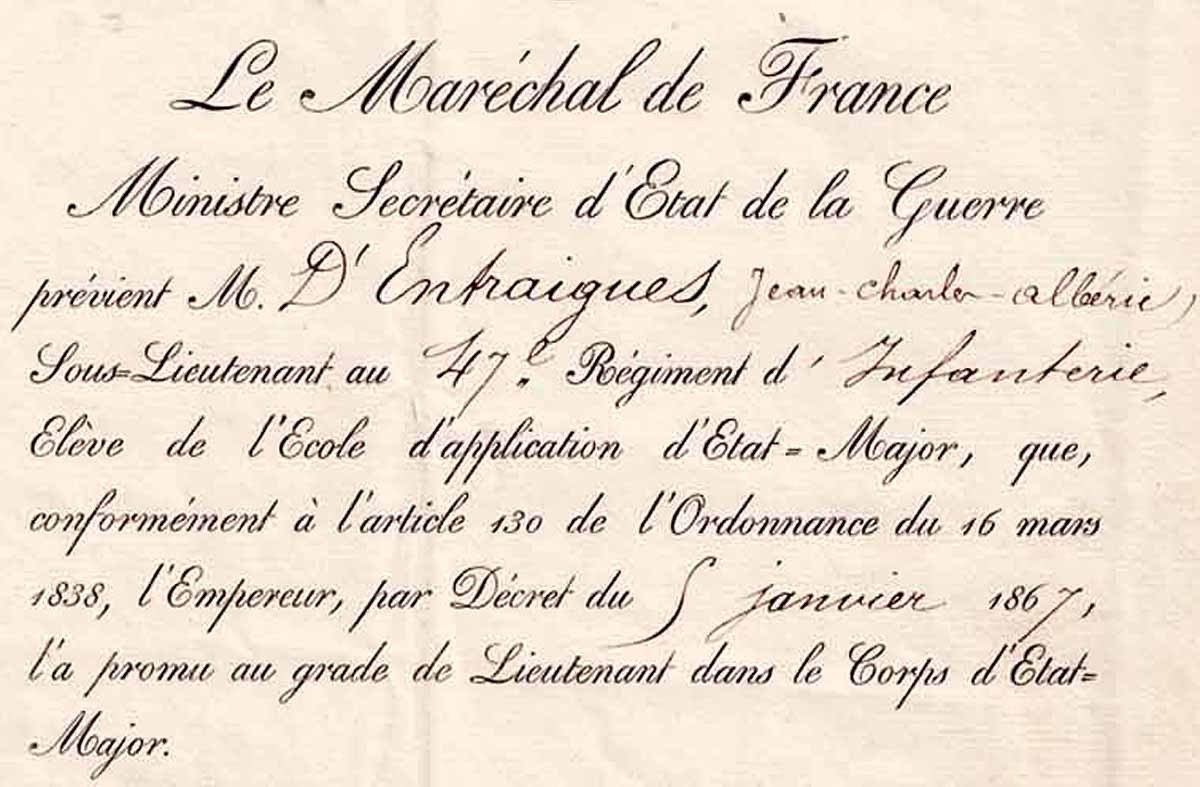 Le Maréchal de France
Ministre Secrétaire d'Etat de la Guerre
prévient M. D'Entraigues, Jean-Charles-Albéric,
Sous=Lieutenant au 47e Régiment d' Infanterie,
Elève de l'Ecole d'application d'Etat=Major, que,
conformément à l'article 130 de l'Ordonnance du 16 mars
1838, l'Empereur, par Décret du 5 janvier 1867,
l'a promu au grade de Lieutenant dans le Corps d'Etat=
Major.